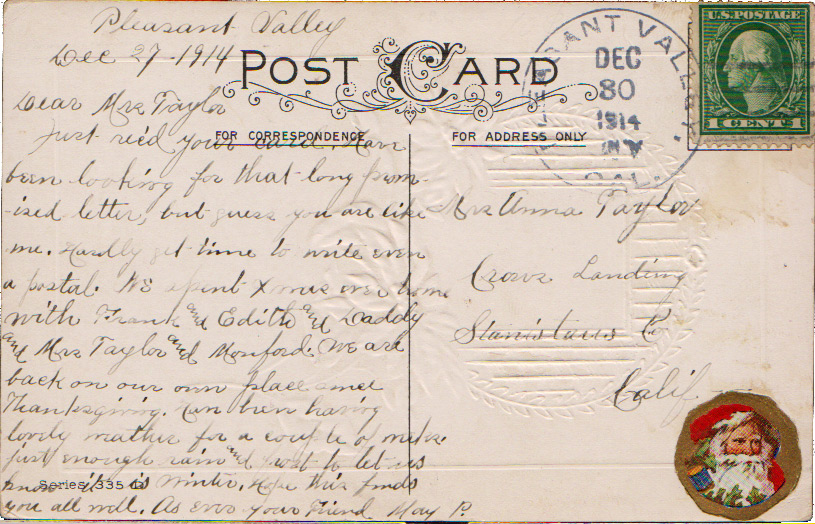 Pleasant Valley
Dec 27-1914
POST CARD
PLEASANT VALLEY
DEC
30
1914
CAL.
U.S. POSTAGE
1 CENT 1
Dear Mrs Taylor
FOR CORRESPONDENCE
FOR ADDRESS ONLY
Just rec'd your card. Have
been looking for that long prom-
-ised letter, but guess you are like
me. Hardly get time to write even
a postal. We spent Xmas over home
with Frank and Edith and Daddy
and Mrs Taylor and Monford. We are
back on our own place since
Thanksgiving. Have been having
lovely weather for a couple of weeks.
Just enough rain and frost to let us
know it is winter. Hope this finds
you all well. As ever your Friend May P.
Series 335
Mrs Anna Taylor
Crows Landing
Stanislaus Co
Calif